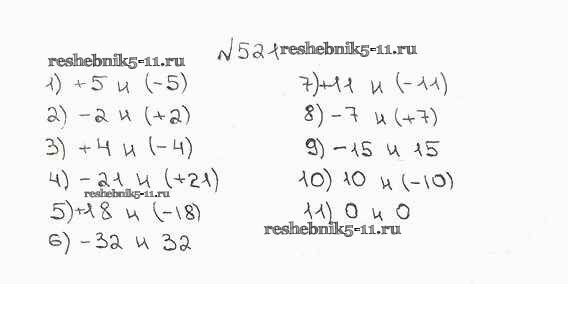 №521
reshebnik5-11.ru
reshebnik5-11.ru
1) +5 и (-5)
2) -2 и (+2)
3) +4 и (-4)
4) -21 и (+21)
reshebnik5-11.ru
5) +18 и (-18)
6) -32 и 32
7) +11 и (-11)
8) -7 и (+7)
9) -15 и 15
10) 10 и (-10)
11) 0 и 0
reshebnik5-11.ru